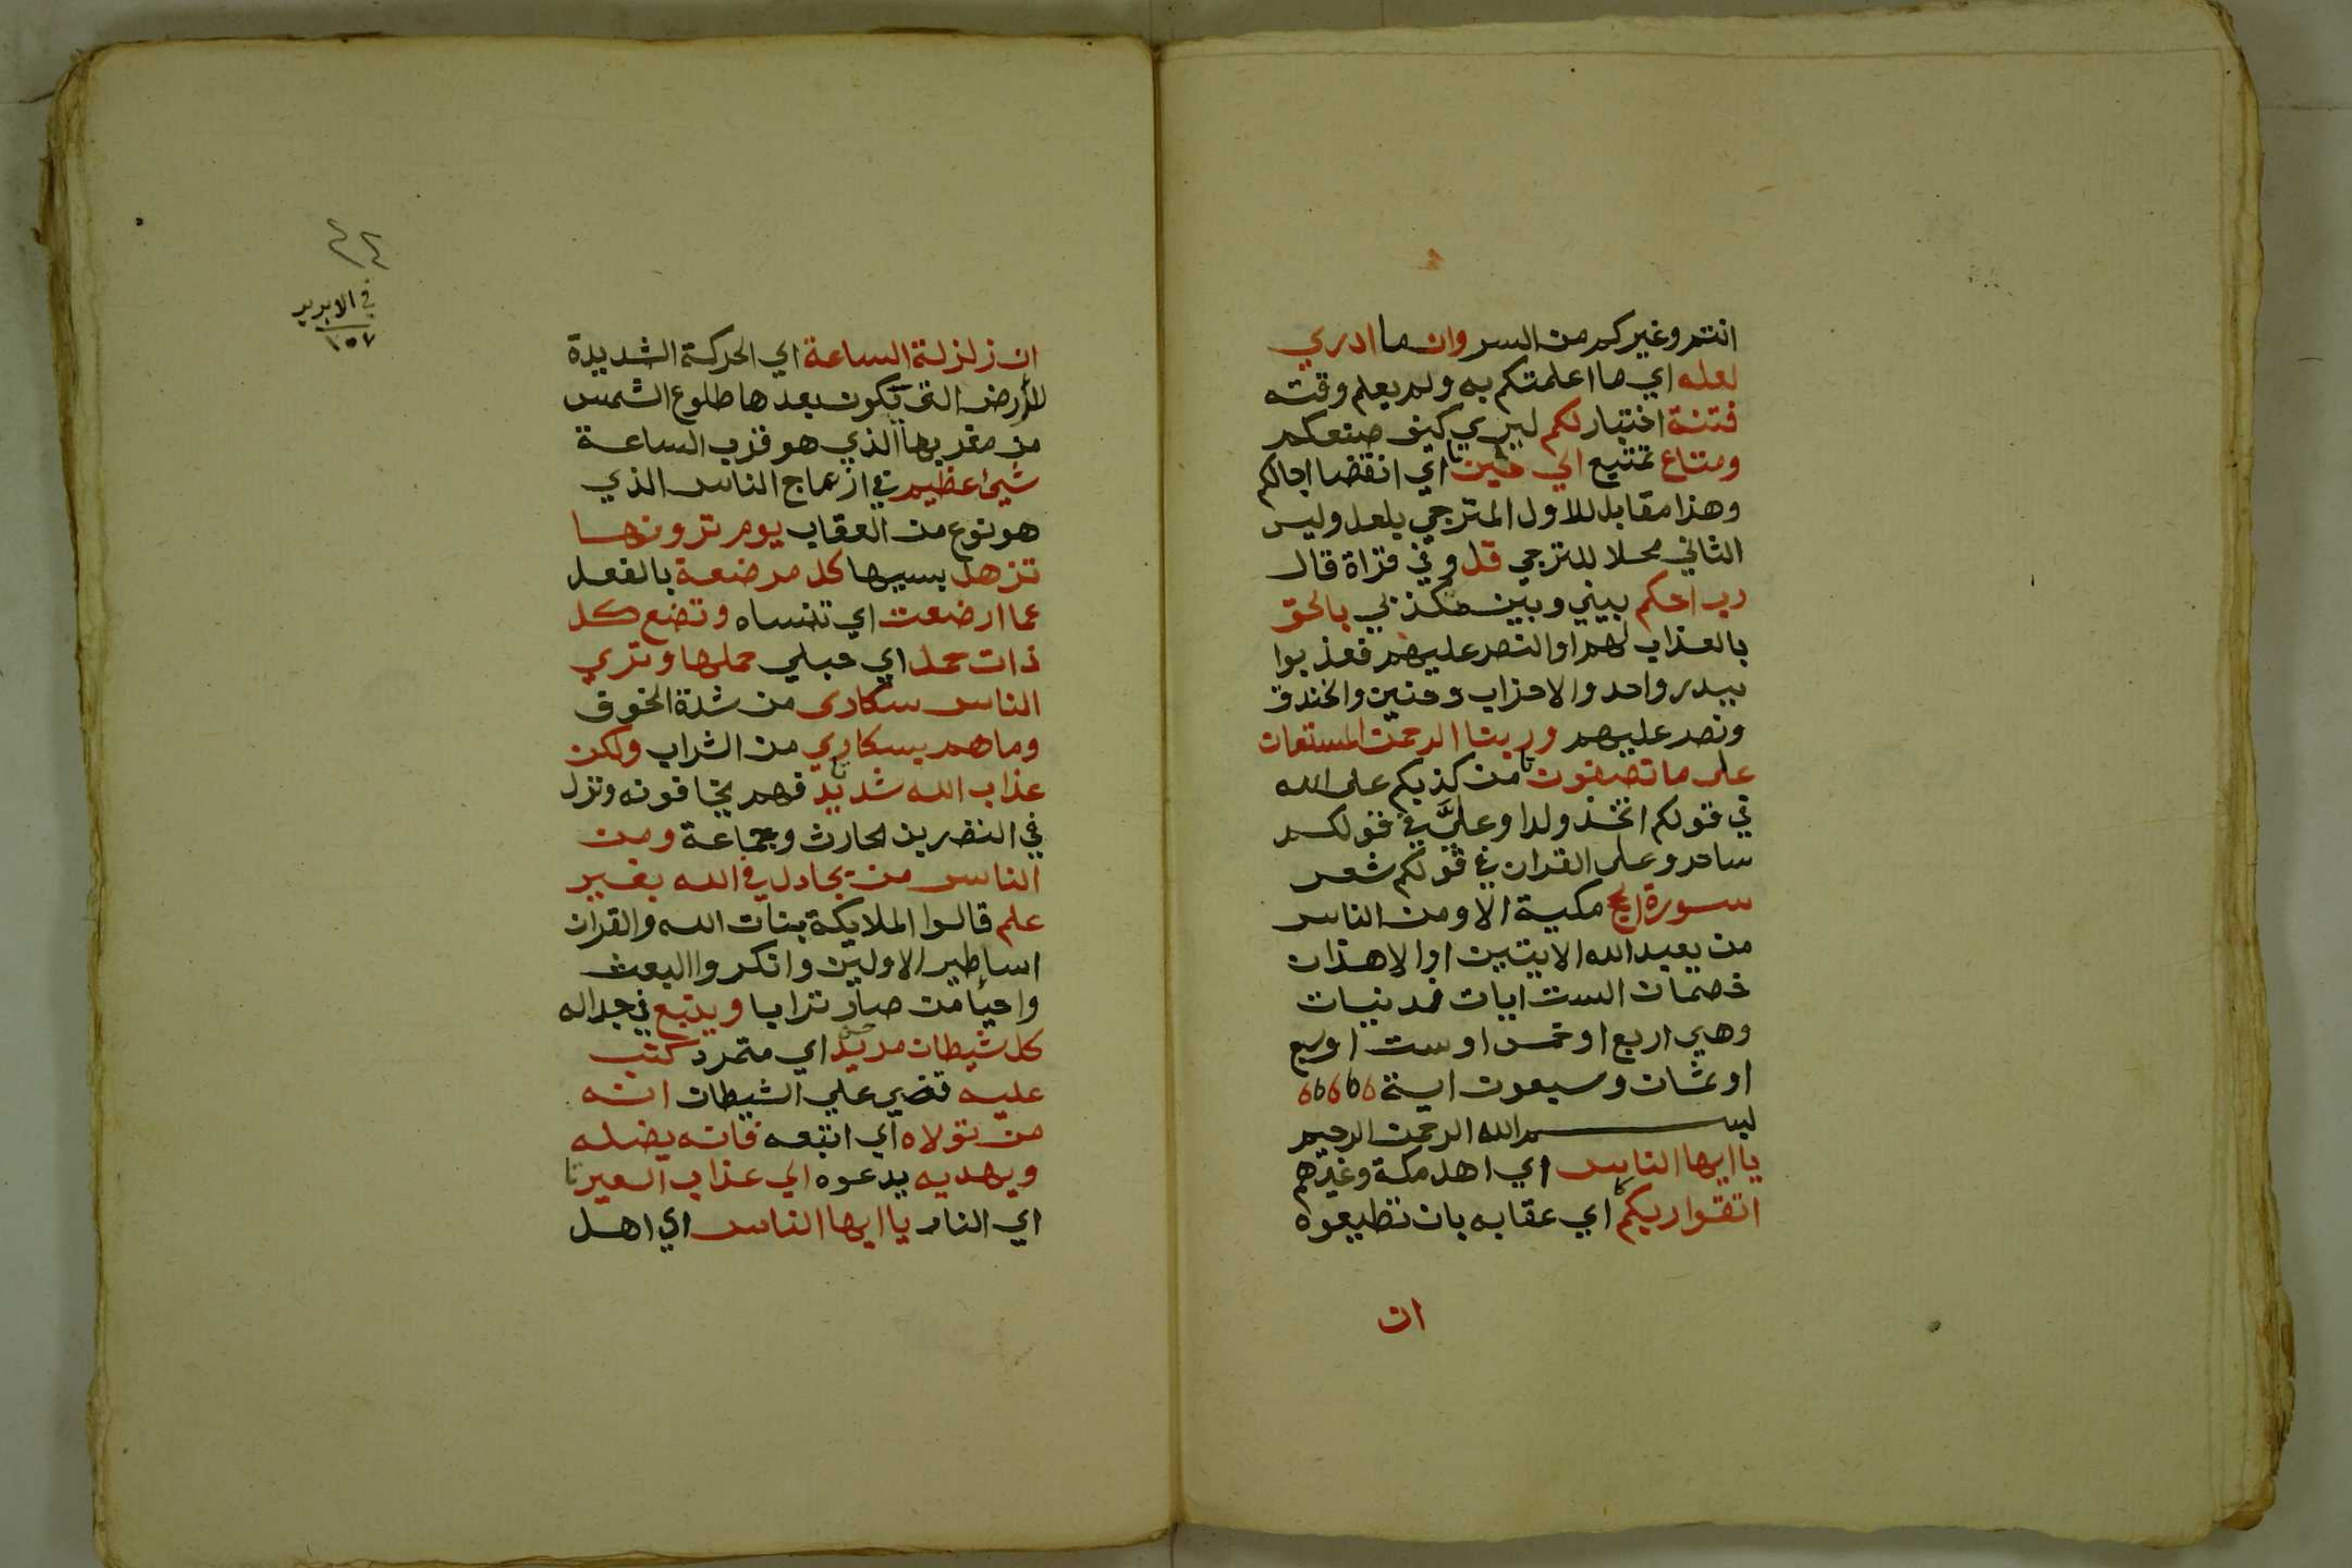 انتم وغيركم من السر وان ما ادري
لعله اي ما اعلمتكم به ولم يعلم وقته
فتنة اختبار لكم ليري كيف صنعكم
ومتاع تمتيع الي حين اي انقضا اجالكم
وهذا مقابل للاول المترجي بلعل وليس
الثاني محلا للترجي قل وفي قراة قال
رب احكم بيني وبين مكذبي بالحق
بالعذاب لهم او النصر عليهم فعذبوا
ببدر واحد والاحزاب وحنين والخندق
ونصر عليهم وربنا الرحمن المستعان
على ما تصفون من كذبكم على الله
في قولكم اتخذ ولدا وعليَّ في قولكم
ساحر وعلى القران في قولكم شعر
سورة الحج مكية الا ومن الناس
من يعبد الله الايتين او الا هذان
خصمان الست ايات فمدنيات
وهي اربع او خمس او ست او سبع
او ثمان وسبعون اية
بسم الله الرحمن الرحيم
يا ايها الناس اي اهل مكة وغيرهم
اتقوا ربكم اي عقابه بان تطيعوه
ان
في الابريز
١٥٧
ان زلزلة الساعة اي الحركة الشديدة
للأرض التي تكون بعدها طلوع الشمس
من مغربها الذي هو قرب الساعة
شيئ عظيم في ازعاج الناس الذي
هو نوع من العقاب يوم ترونها
تزهل بسببها كل مرضعة بالفعل
عما ارضعت اي تنساه وتضع كل
ذات حمل اي حبلي حملها وتري
الناس سكارى من شدة الخوف
وما هم بسكاري من الشراب ولكن
عذاب الله شديد فهم يخافونه ونزل
في النضر بن الحارث وجماعة ومن
الناس من يجادل في الله بغير
علم قالوا الملايكة بنات الله والقران
اساطير الاولين وانكروا البعث
واحيأ من صار ترابا ويتبع في جداله
كل شيطان مريد اي متمرد كتب
عليه قضي علي الشيطان انه
من تولاه اي اتبعه فانه يضله
ويهديه يدعوه الي عذاب السعير
اي النار يا ايها الناس اي اهل